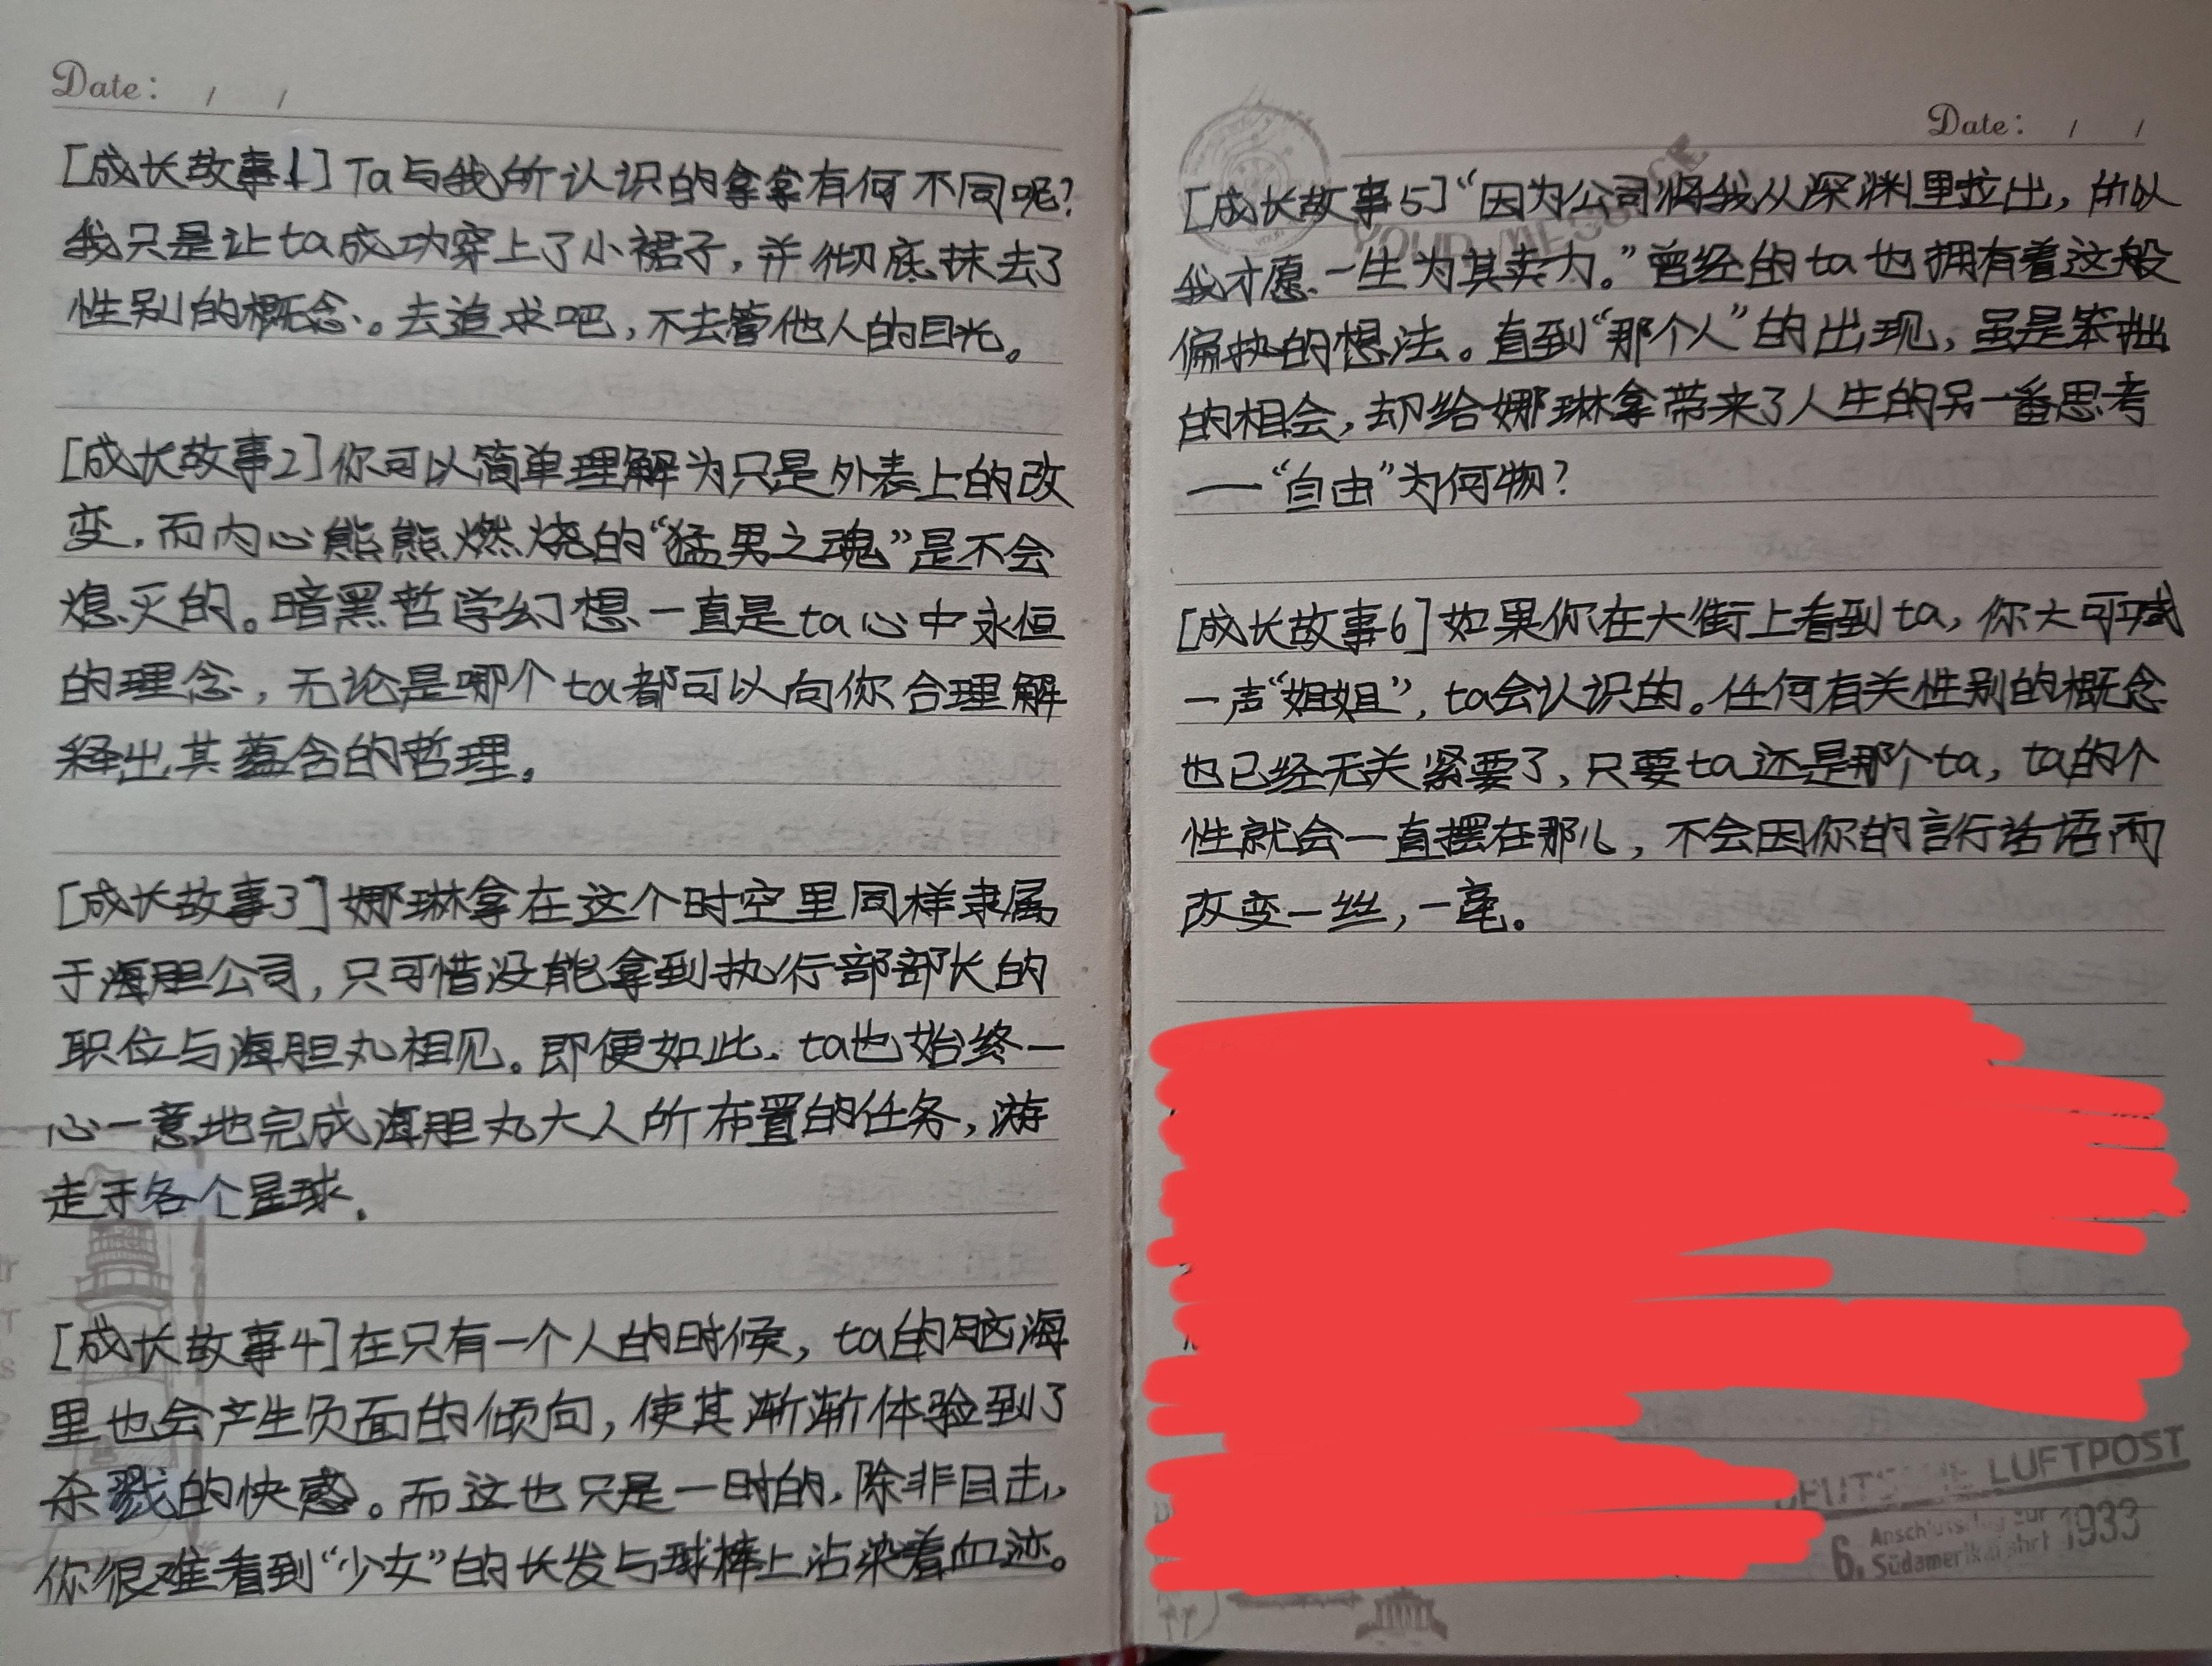 Date: / /
[成长故事1] Ta与我所认识的拿拿有何不同呢?
我只是让ta成功穿上了小裙子,并彻底抹去了
性别的概念。去追求吧,不去管他人的目光。
[成长故事2]你可以简单理解为只是外表上的改
变,而内心熊熊燃烧的“猛男之魂”是不会
熄灭的。暗黑哲学幻想一直是ta心中永恒
的理念,无论是哪个ta都可以向你合理解
释出其蕴含的哲理。
[成长故事3]娜琳拿在这个时空里同样隶属
于海胆公司,只可惜没能拿到执行部部长的
职位与海胆丸相见。即便如此,ta也始终一
心一意地完成海胆丸大人所布置的任务,游
走于各个星球。
[成长故事4]在只有一个人的时候,ta的脑海
里也会产生负面的倾向,使其渐渐体验到了
杀戮的快感。而这也只是一时的,除非目击,
你很难看到“少女”的长发与球棒上沾染着血迹。
Date: / /
[成长故事5]“因为公司将我从深渊里拉出,所以
我才愿一生为其卖力。”曾经的ta也拥有着这般
偏执的想法。直到“那个人”的出现,虽是笨拙
的相会,却给娜琳拿带来了人生的另一番思考
——“自由”为何物?
[成长故事6]如果你在大街上看到ta,你大可喊
一声“姐姐”,ta会认识的。任何有关性别的概念
也已经无关紧要了,只要ta还是那个ta,ta的个
性就会一直摆在那儿,不会因你的言行话语而
改变一丝,一毫。
DEUTSCHE LUFTPOST
6. Anschlussflug zur
Südamerikafahrt 1933